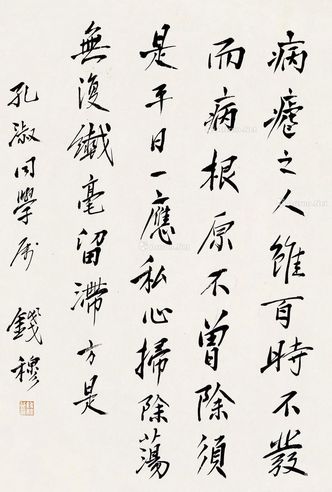 病瘧之人雖有時不發
而病根原不曾除須
是平日一應私心掃除蕩
無復纖毫留滯方是
孔淑同學屬 錢穆